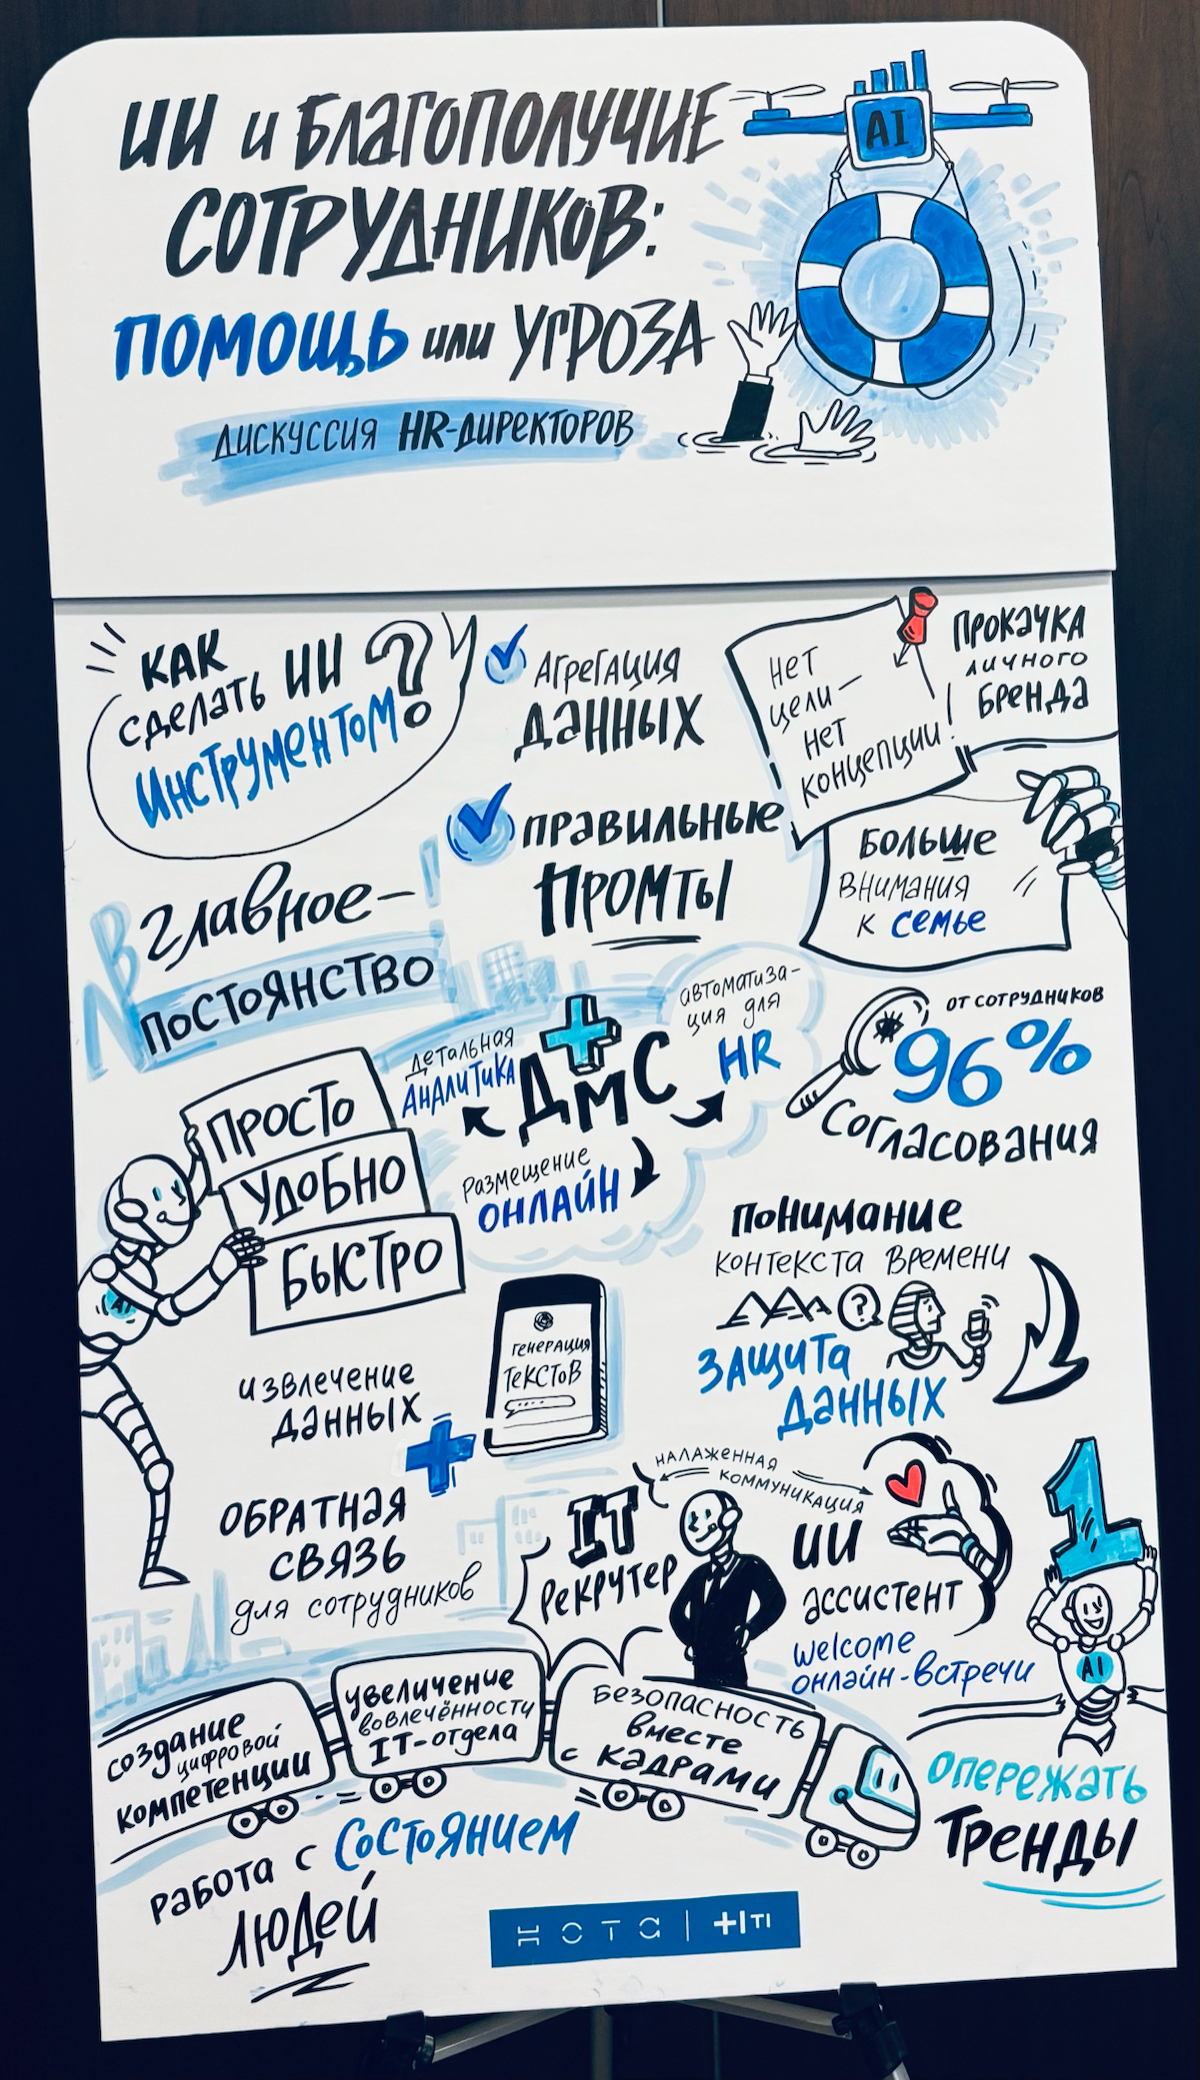 ИИ и БЛАГОПОЛУЧИЕ
СОТРУДНИКОВ:
ПОМОЩЬ или УГРОЗА
ДИСКУССИЯ HR-ДИРЕКТОРОВ
AI
КАК
сделать ИИ
ИНСТРУМЕНТОМ?
АГРЕГАЦИЯ
ДАННЫХ
ПРАВИЛЬНЫЕ
ПРОМТЫ
НЕТ
цели —
НЕТ
концепции!
ПРОКАЧКА
личного
БРЕНДА
БОЛЬШЕ
ВНИМАНИЯ
К СЕМЬЕ
Главное —
ПОСТОЯНСТВО
ПРОСТО
УДОБНО
БЫСТРО
AI
детальная
АНАЛИТИКА
ДМС
автоматиза-
ция для
HR
размещение
ОНЛАЙН
ОТ СОТРУДНИКОВ
96%
Согласования
ПОНИМАНИЕ
КОНТЕКСТА ВРЕМЕНИ
?
ЗАЩИТА
ДАННЫХ
ИЗВЛЕЧЕНИЕ
ДАННЫХ
ГЕНЕРАЦИЯ
ТЕКСТОВ
ОБРАТНАЯ
СВЯЗЬ
для сотрудников
НАЛАЖЕННАЯ
КОММУНИКАЦИЯ
IT
РЕКРУТЕР
ИИ
АССИСТЕНТ
welcome
онлайн-встречи
1
AI
ОПЕРЕЖАТЬ
ТРЕНДЫ
создание
цифровой
компетенции
увеличение
вовлечённости
IT-отдела
БЕЗОПАСНОСТЬ
вместе
с кадрами
РАБОТА С СОСТОЯНИЕМ
ЛЮДЕЙ
НОТА | HTI